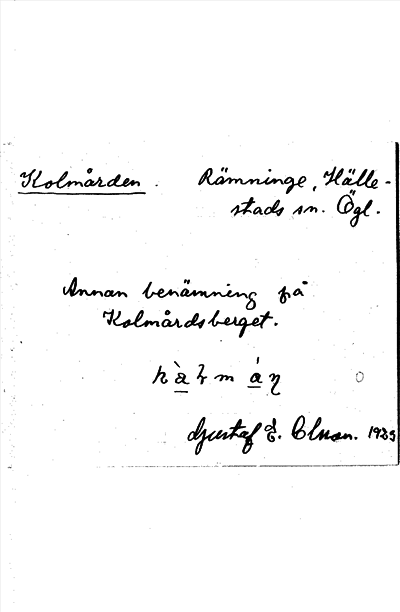 Kolmården. Rämninge, Hälle-
stads sn. Ögl.
Annan benämning på
Kolmårdsberget.
Gustaf E. Olson.